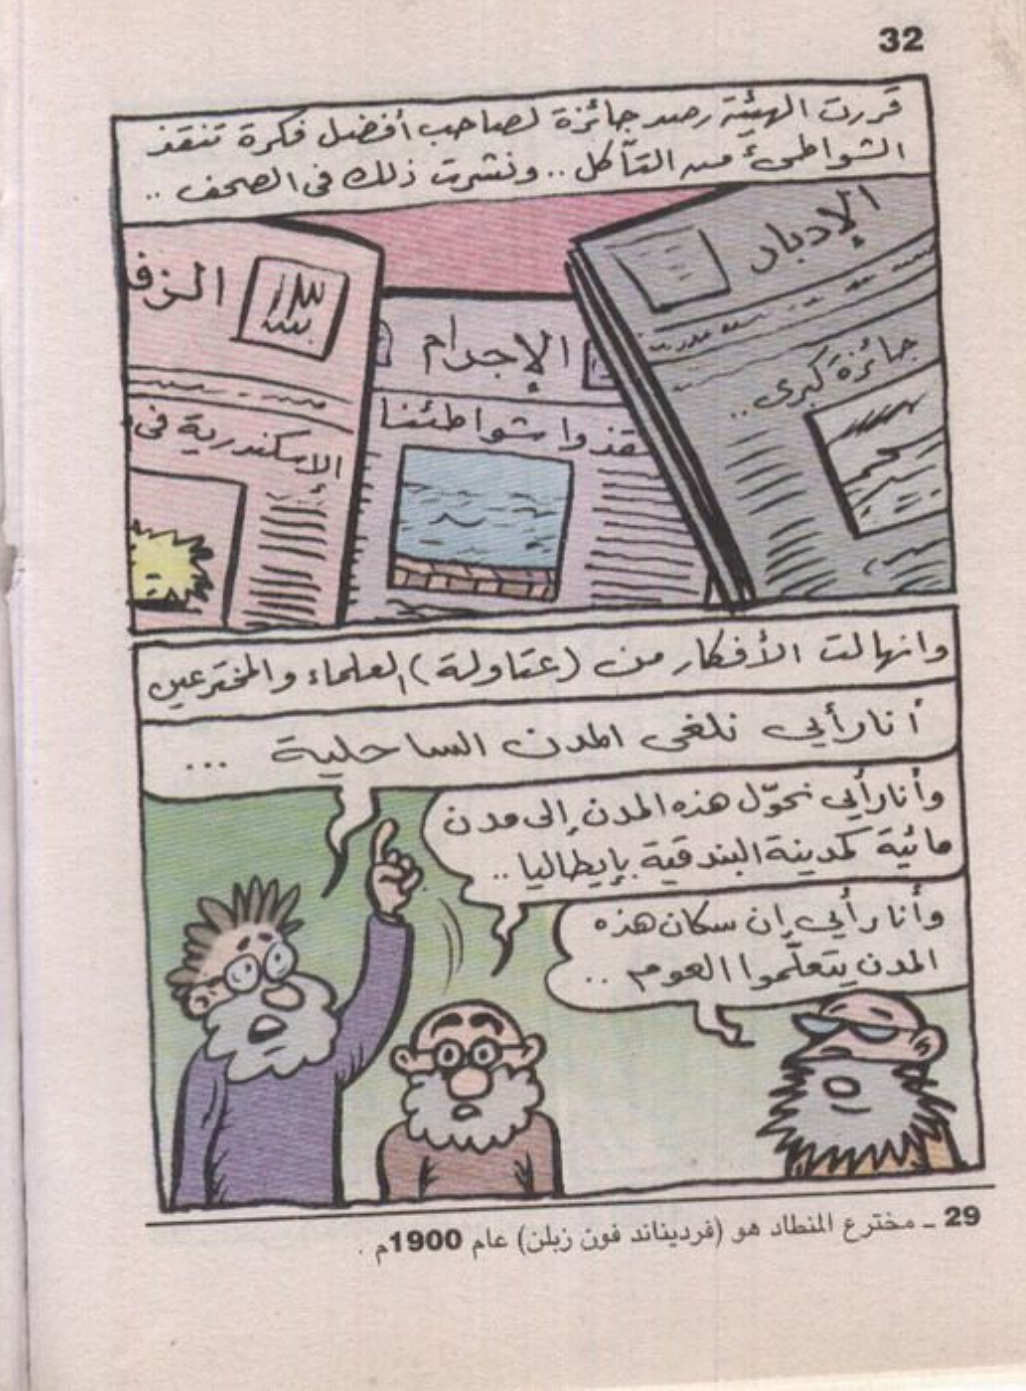 32
قررت الهيئة رصد جائزة لصاحب أفضل فكرة تنقذ
الشواطئ من التآكل .. ونشرت ذلك فى الصحف ..
الإدبار
جائزة كبرى ..
الإجرام
نقذوا شواطئنا
الزف
الإسكندرية فى
وانهالت الأفكار من (عتاولة) العلماء والمخترعين
أنا رأيى نلغى المدن الساحلية ...
وأنا رأيى نحوّل هذه المدن إلى مدن
مائية كمدينة البندقية بإيطاليا ..
وأنا رأيى إن سكان هذه
المدن يتعلّموا العوم ..
29 ـ مخترع المنطاد هو (فرديناند فون زبلن) عام 1900م .